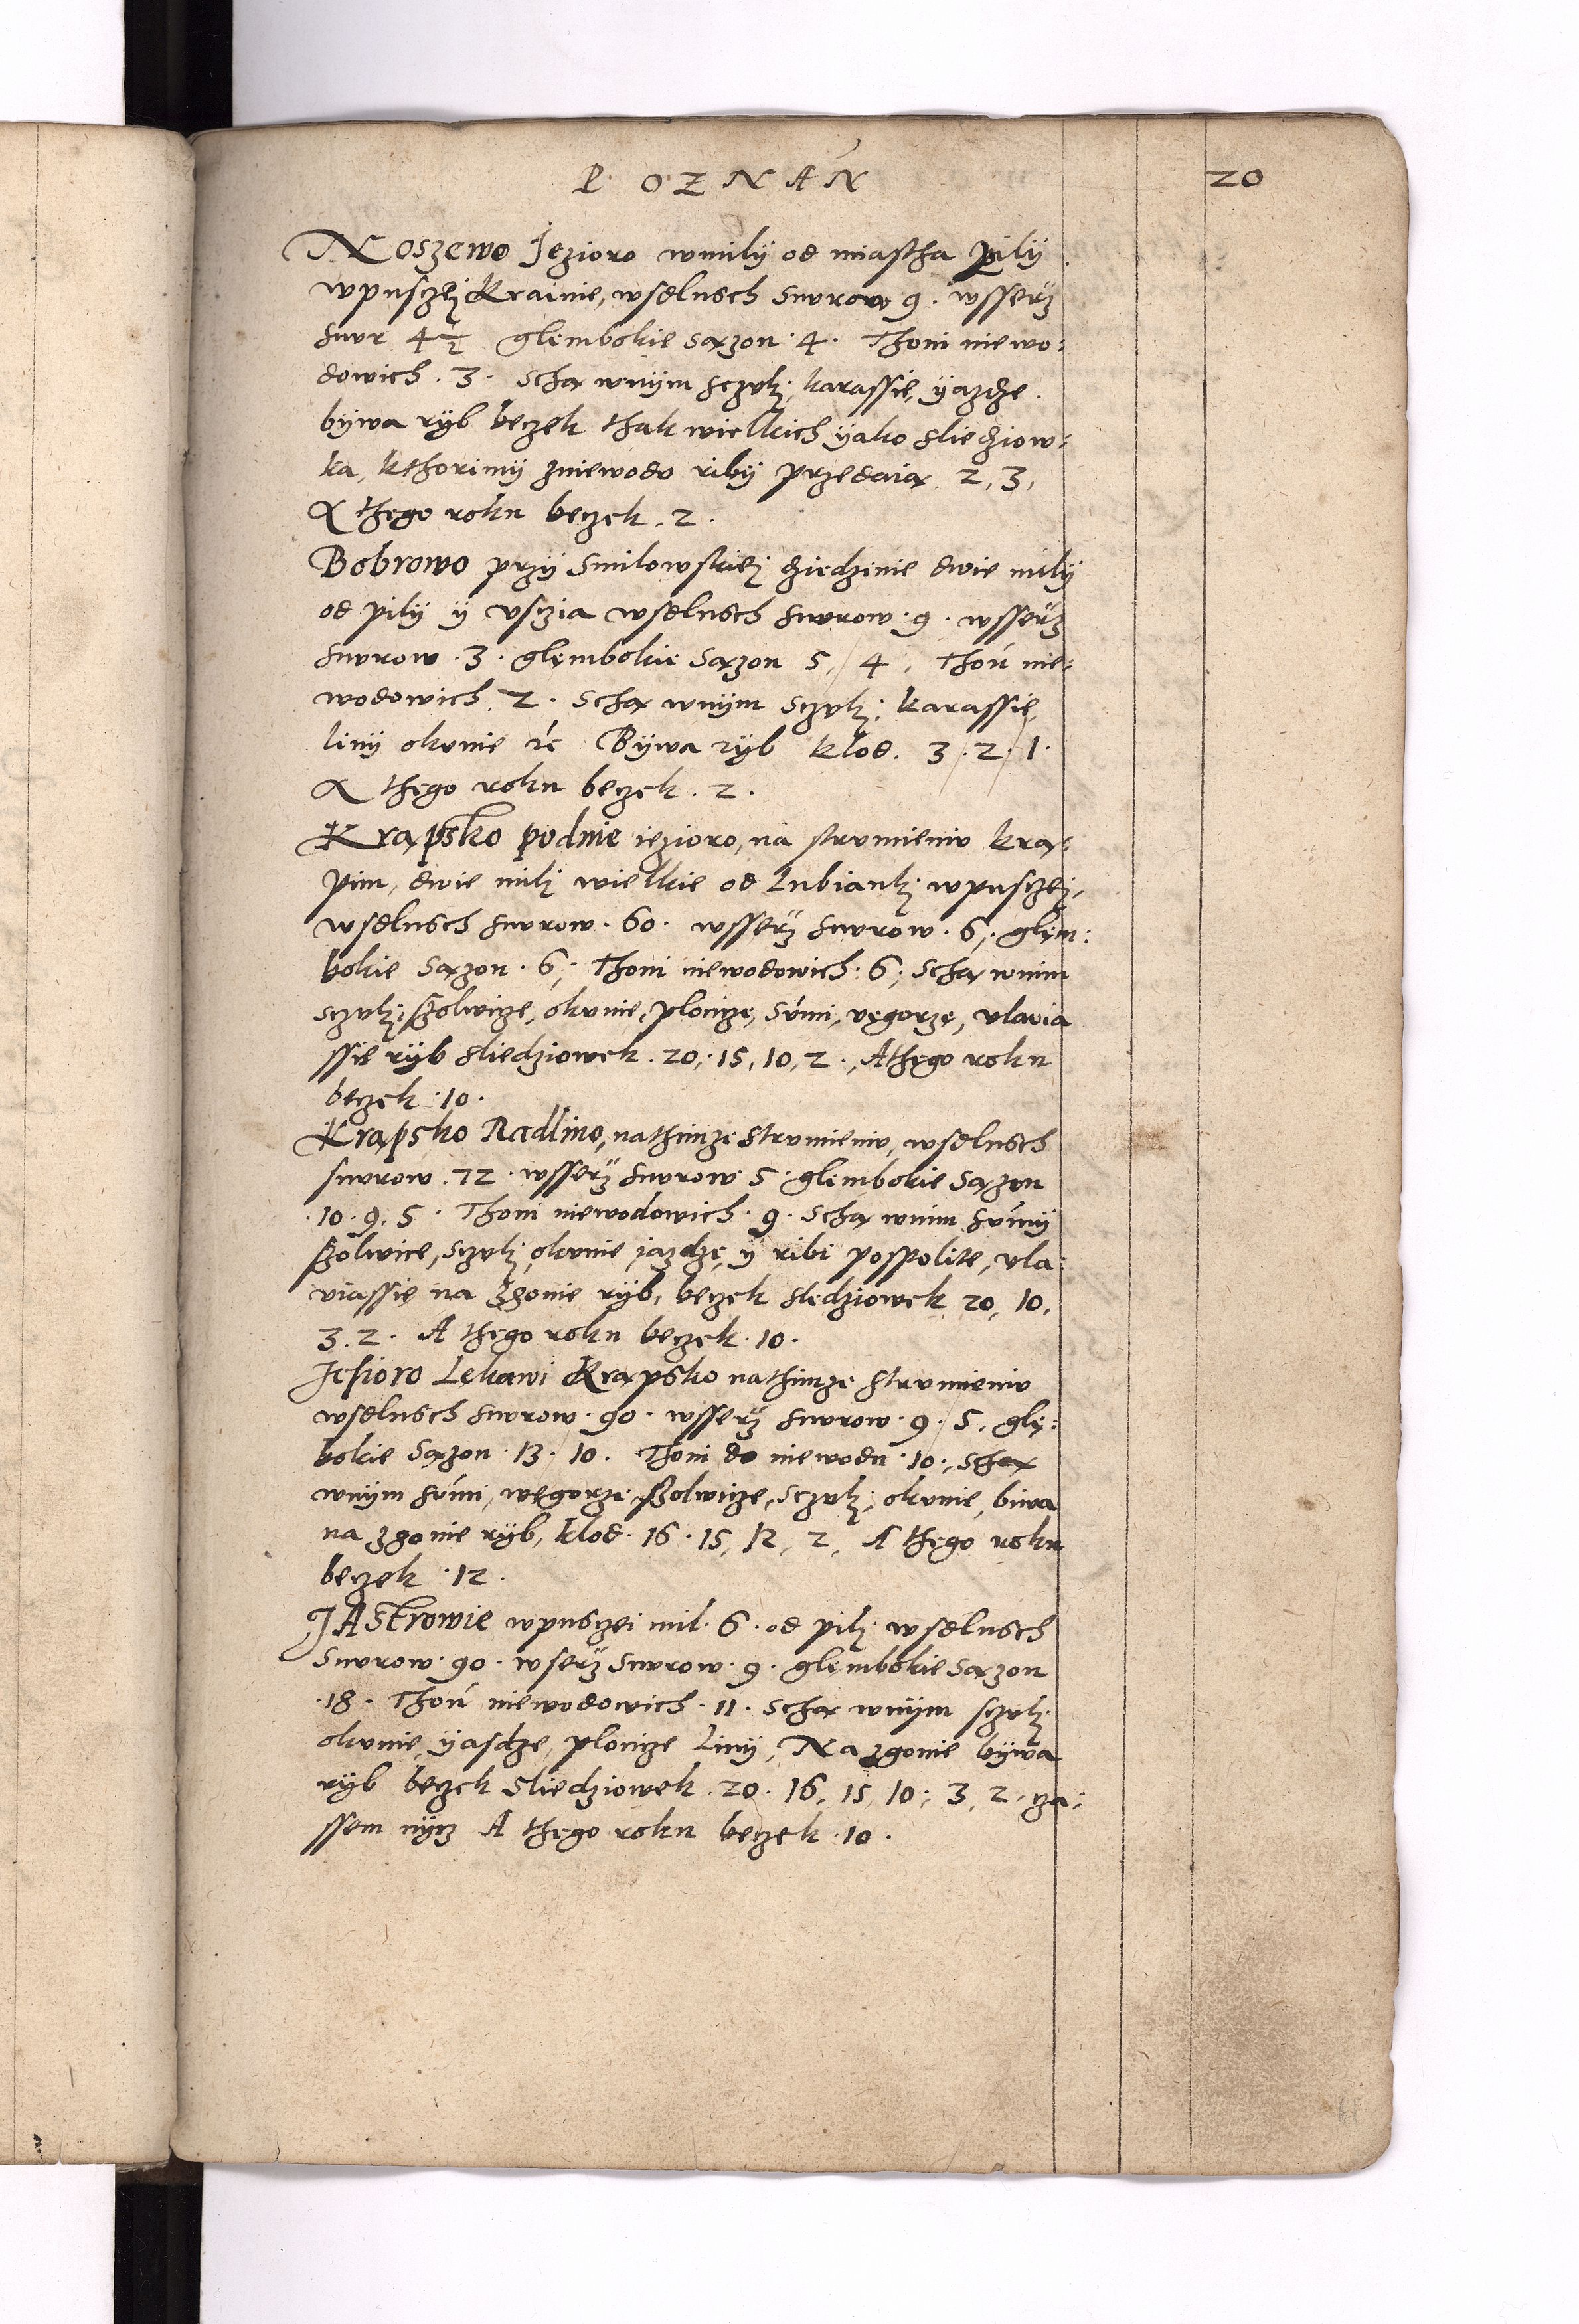 POZNAŃ
20
Noszewo Jezioro wmilÿ od miastha Pilÿ
wpusczej Krainie, wsdlusch Snurow 9. wsserz
snur 4½ glembokie Sazon .4. Thoni niewo:
dowich .3. Scha wnÿm sczuki, karassie, ÿazdze.
bÿwa rÿb beczek thak wielkich ÿako sliedziow:
ka, kthorimÿ zniewodo ribÿ przedaia 2, 3,
A thego roku beczek .2.
Bobrowo przÿ Smilowskiej dziedzinie dwie milÿ
od pilÿ ÿ usczia wsdlusch snurow .9. wsserz
snurow .3. glembokie Sazon 5, 4, Thoń nie:
wodowich .2. Scha wnÿm Sczuki, karassie,
linÿ okunie etc Bÿwa rÿb klod. 3.2.1.
A thego roku beczek .2.
Krapsko podnie iezioro, na strumieniu kra:
pim, dwie mili wielkie od Lubianki wpusczej,
wsdlusch snurow .60. wsserz snurow .6, glem:
bokie Sazon .6, Thoni niewodowich .6, Scha wnim
sczuki, szolwicze, okunie, plocicze, Sumi, vegorze, vlavia
ssie rÿb sliedziowek .20, 15, 10, 2., A thego roku
beczek .10.
Krapsko Radlino, nathimze strumieniu, wsdlusch
snurow .72. wsserz snurow 5. glembokie Sazon
.10.9.5. Thoni niewodowich .9. Scha wnim sumÿ
szolwice, Sczuki, okunie, jazdze, ÿ ribi pospolite, vla:
viassie na zgonie rÿb, beczek sledziowek 20, 10,
3.2. A thego roku beczek .10.
Jesioro Lekawi Krapsko nathimze strumieniu
wsdlusch snurow .90. wsserz snurow .9. 5, gle:
bokie Sazon .13. 10. Thoni do niewodu .10., Scha
wnÿm sumi, wegorze, szolwicze, Sczuki, okunie, biwa
na zgonie rÿb, klod .16. 15, 12, 2, A thego roku
beczek .12.
JAStrowie wpusczei mil .6. od pili wsdlusch
Snurow .90. wserz Snurow .9. glembokie Sazon
.18. Thoń niewodowich .11. Scha wnÿm sczuki
okunie, ÿasdze, plocicze Linÿ, Na zgonie bÿwa
rÿb beczek Sliedziowek .20. 16, 15, 10, 3, 2, cza:
ssem nÿcz A thego roku beczek .10.